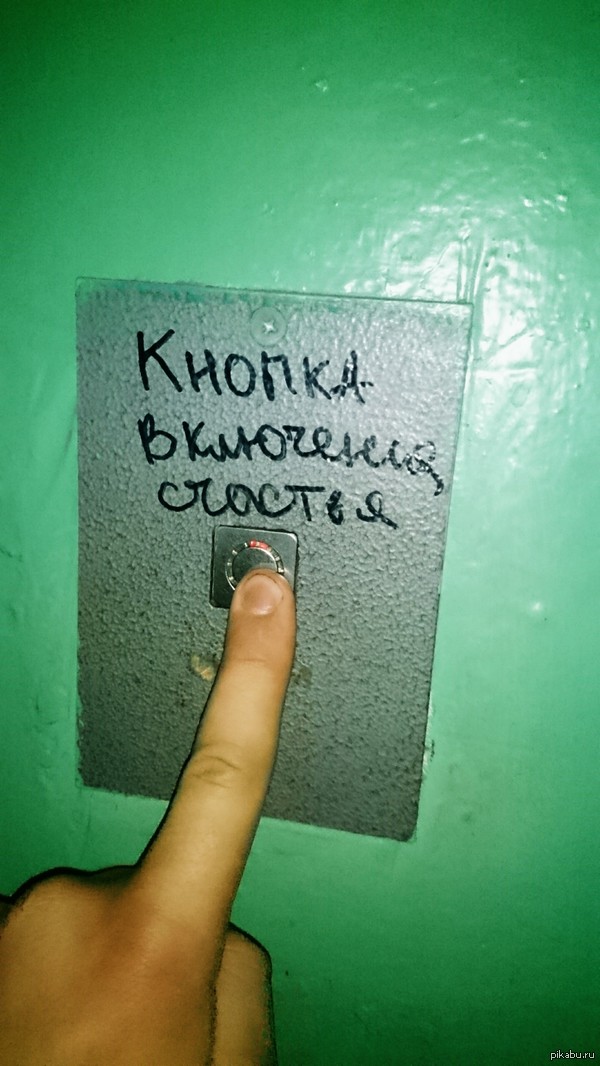 Кнопка
включения
счастья
pikabu.ru